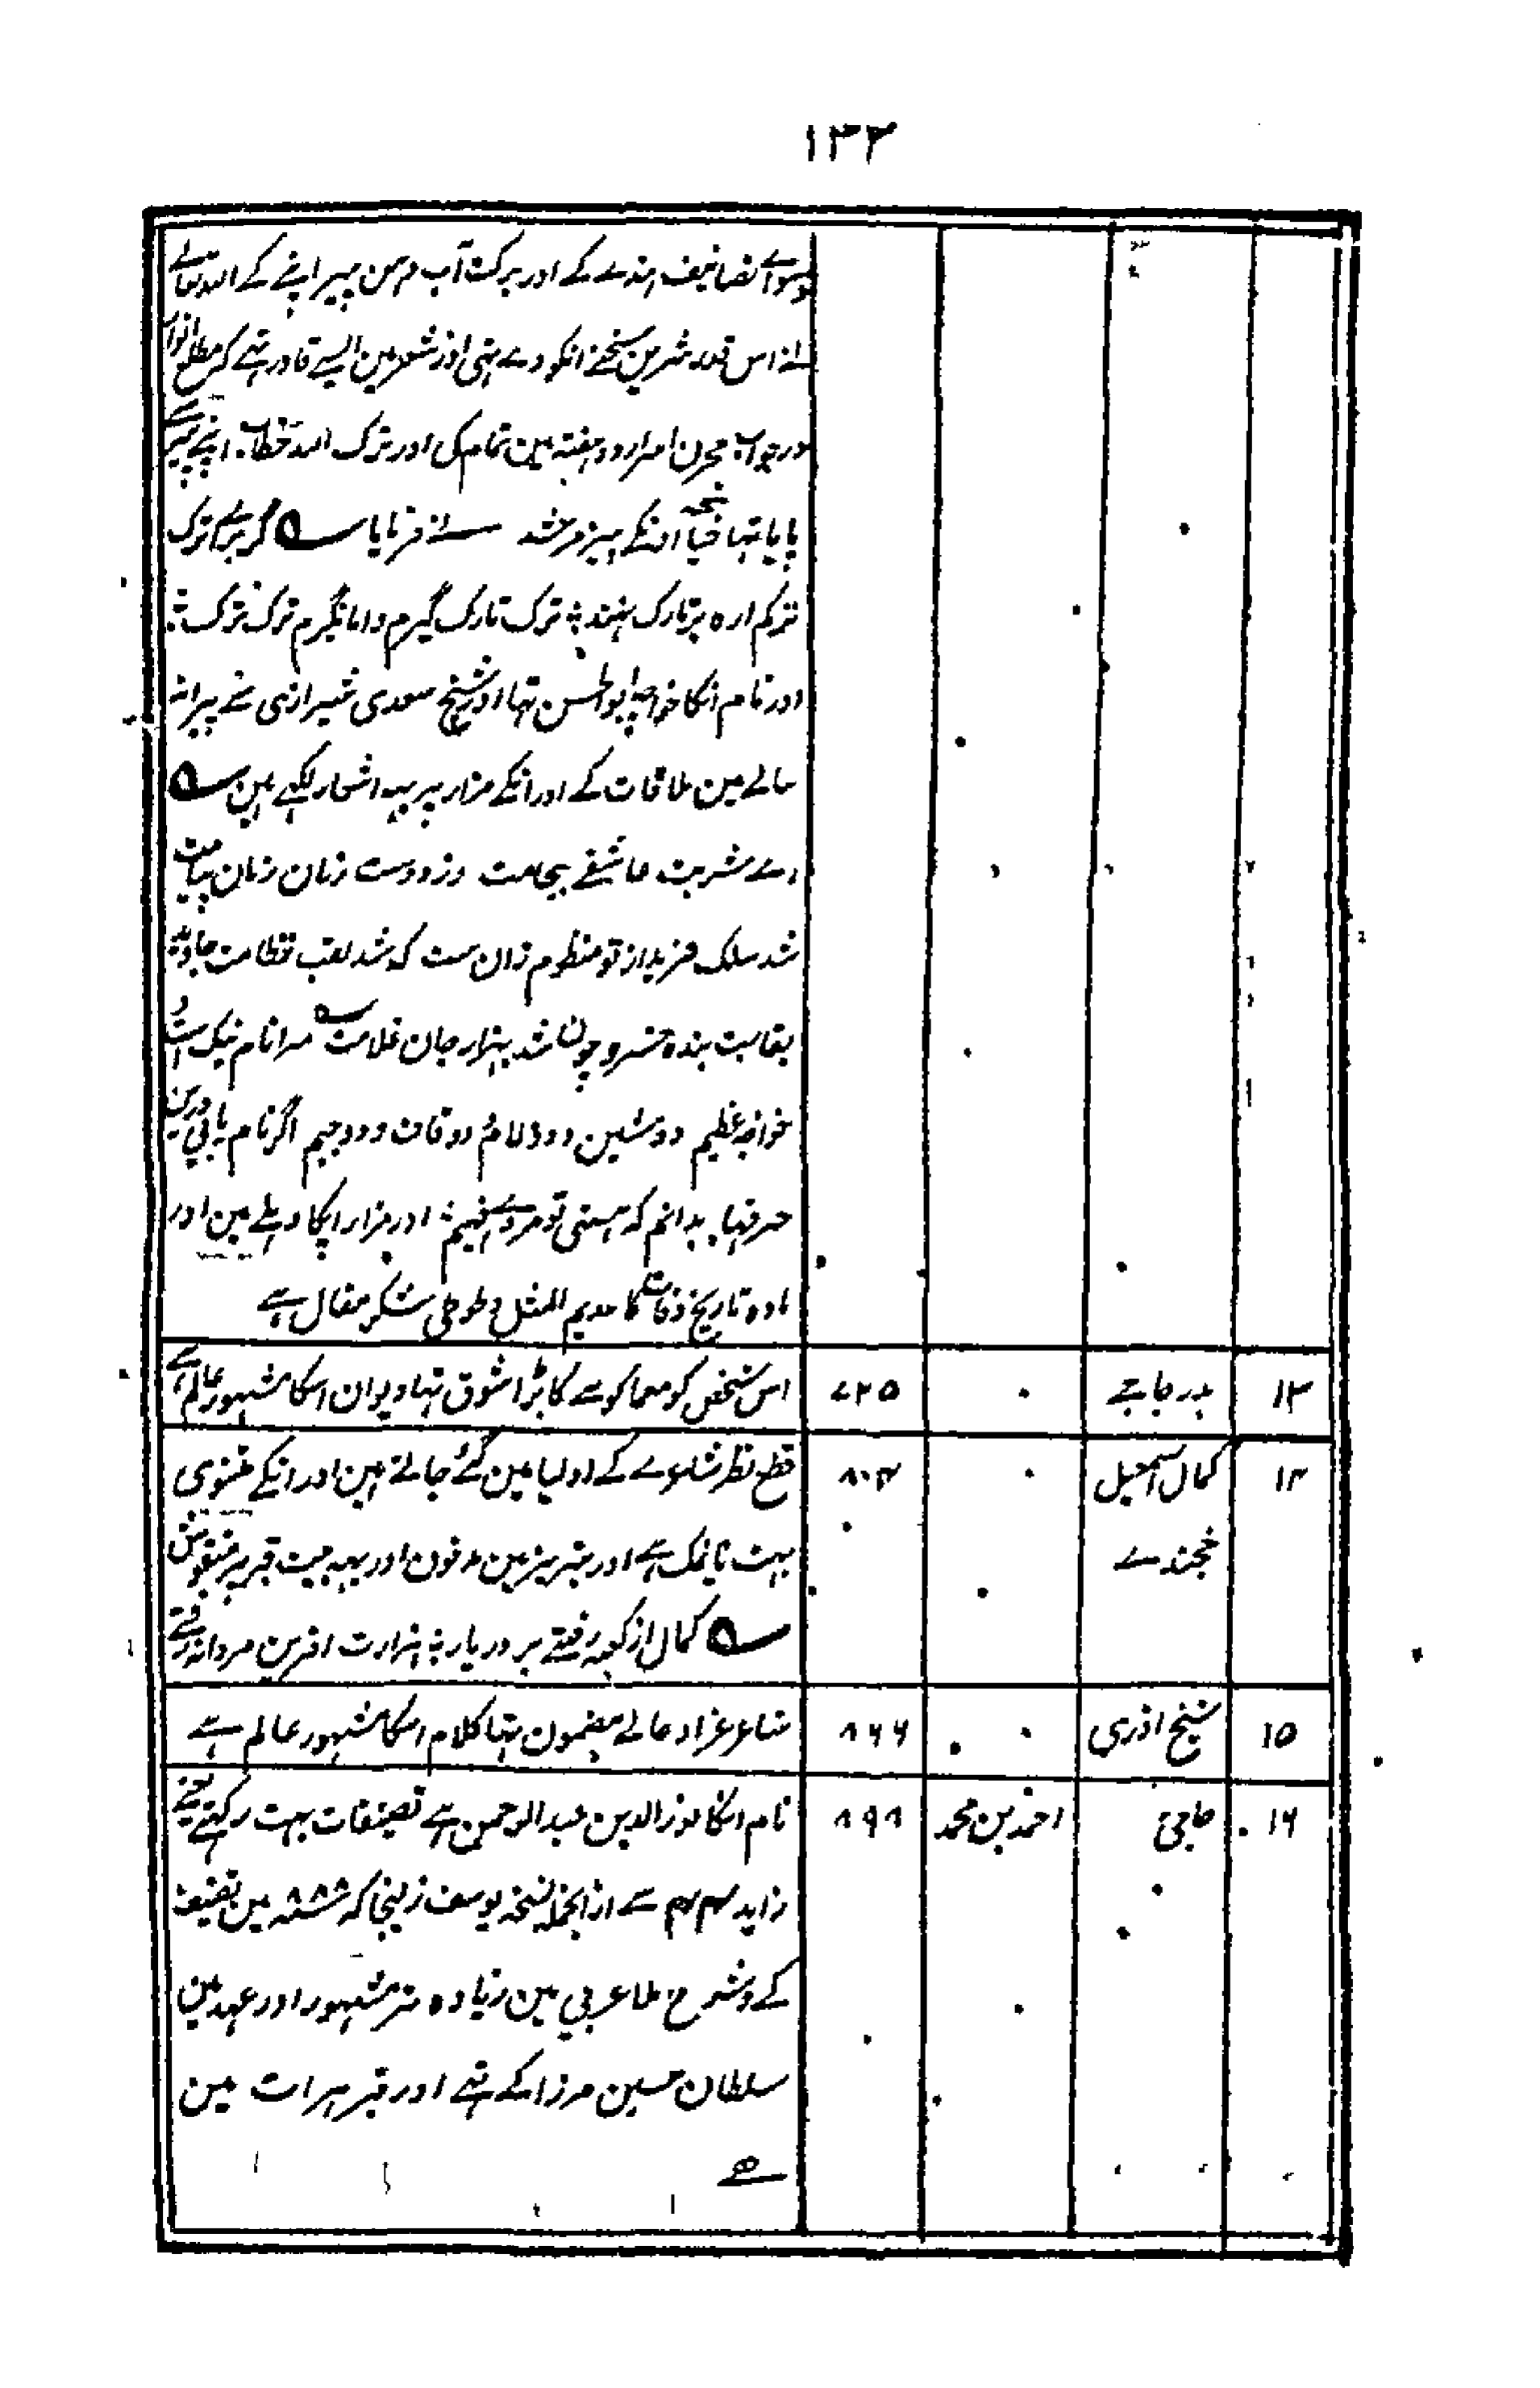 ۱۳۲
سواے تصانیف ہندے کے اور برکت آب دہن پیر اپنے کے اللہ تعالے
نے اس قدر شیرین سخنے انکو دے تہی اور شعر مین ایسے قادر تہے کہ مطلع انوار
در جواب مخزن اسرار دو ہفتہ مین تمام کی اور ترک اللہ خطاب اپنے پیر سے
پایا تہا چنانچہ اونکے پیر مرشد نے فرمایا ؎ گر براے ترک
ترکم ارہ بر تارک نہند ؛ ترک تارک گیرم و اما نگیرم ترک ترک ؛
اور نام انکا خواجہ ابوالحسن تہا اور شیخ سعدی شیرازی نے پیرانہ
سالے مین ملاقات کے اور انکے مزار پر یہہ اشعار لکہے ہین ؎
اے شربت عاشقے بجامت وز دوست زمان زمان پیامت
شد سلک فرید از تو منظوم زان ست کہ شد لقب نظامت جاوید
بقاست بندہ خسرو چون شد بہزار جان غلامت ؎ مرا نام نیک است
خواجہ عظیم دو شین و دو لام و دو قاف و دو جیم اگر نام یابی درین
حرفہا بدانم کہ ہستی تو مردے فہیم ؛ اور مزار اپکا دہلے مین اور
مادہ تاریخ وفات کا عدیم المثل و طوطی شکر مقال ہے
۱۳ بدر جاجے ۰ ۷۲۵ اس شخص کو معما گوے کا بڑا شوق تہا دیوان اسکا مشہور عالم ہے
۱۴ کمال اسمعیل ۰ ۸۰۳ قطع نظر شاعرے کے اولیا مین گنے جاتے ہین اور انکے مثنوی
خجندے بہت با نمک ہے اور تبریز مین مدفون اور یہہ بیت قبر پر منقوش
؎ کمال از کعبہ رفتے بر در یار ؛ ہزارت افرین مردانہ رفتے
۱۵ شیخ اذری ۰ ۸۶۶ شاعر غزا و عالے مضمون تہا کلام اسکا مشہور عالم ہے
۱۶ جامی احمد بن محمد ۸۹۸ نام انکا نور الدین عبد الرحمن ہے تصنیفات بہت رکہتے تہے
زاید سے از انجملہ نسخہ یوسف زلیخا کہ مین تصنیف
کے و شرح ملا عربی مین زیادہ تر مشہور اور عہد مین
سلطان حسین مرزا کے تہے اور قبر ہرات مین
ہے